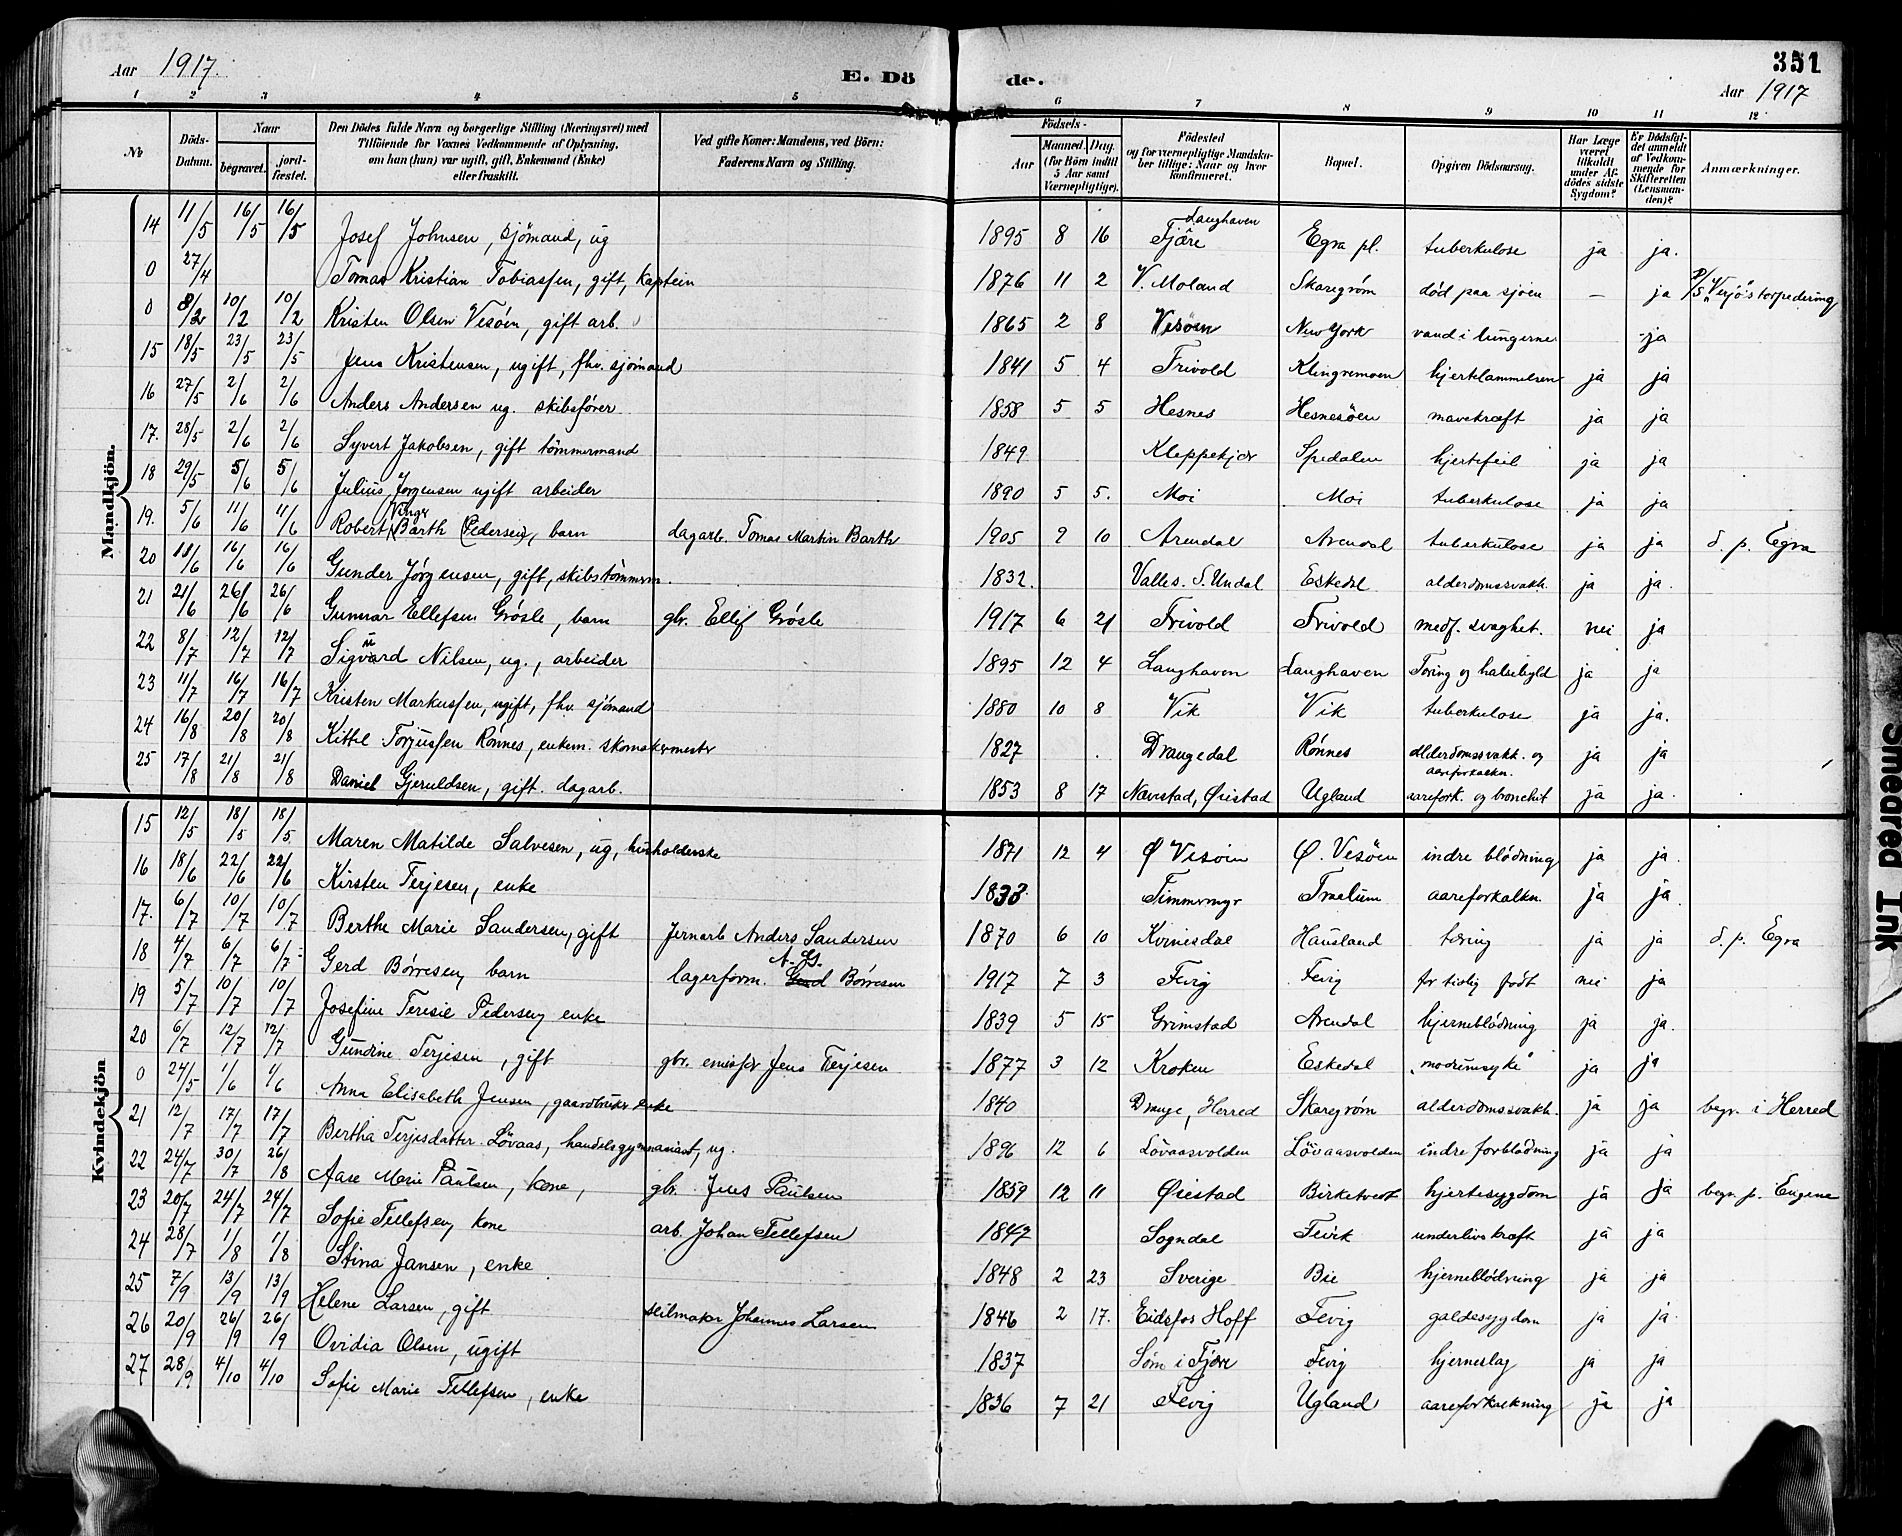 Aar 1917. E. Dö de. 351
Aar 1917
1 2 3 4 5 6 7 8 9 10 11 12
№ Döds-Datum. Naar begravet. jordfæstet. Den Dödes fulde Navn og borgerlige Stilling (Næringsvei) med Tilföiende for Voxnes Vedkommende af Oplysning, om han (hun) var ugift, gift, Enkemand (Enke) eller fraskilt. Ved gifte Koner: Mandens, ved Börn: Faderens Navn og Stilling. Födsels- Aar Maaned Dag (for Börn indtil 5 Aar samt Værnepligtige). Födested og for værnepligtige Mandskaber tillige: Naar og hvor konfirmeret. Bopæl. Opgiven Dödsaarsag. Har Læge været tilkaldt under Afdödes sidste Sygdom? Er Dödsfaldet anmeldt af Vedkommende for Skifteretten (Lensmanden)? Anmærkninger.
Mandkjön.
14 11/5 16/5 16/5 Josef Johnsen, sjömand, ug 1895 8 16 Langhaven Fjære Egra pl. tuberkulose ja ja.
0 27/4 Tomas Kristian Tobiassen, gift, kaptein 1876 11 2 V. Moland Skaregrøm død paa sjøen — ja P/S "Versjö"s torpedering
0 8/2 10/2 10/2 Kristen Olsen Vesöen, gift arb. 1865 2 8 Vesöen New York vand i lungerne ja
15 18/5 23/5 23/5 Jens Kristensen, ugift, fhv. sjömand 1841 5 4 Frivold Klingremoen hjertelammelsen ja ja
16 27/5 2/6 2/6 Anders Andersen ug. skibsfører 1858 5 5 Hesnes Hesnesöen mavekræft ja ja
17. 28/5 2/6 2/6 Syvert Jakobsen, gift tømmermand 1849 Kleppekjær Spedalen hjertefeil ja ja
18 29/5 5/6 5/6 Julius Jørgensen ugift arbeider 1890 5 5. Moi Moi tuberkulose ja ja
19. 5/6 11/6 11/6 Robert Vinge Barth (Pedersen), barn dagarb. Tomas Martin Barth 1905 9 10 Arendal Arendal tuberkulose ja ja d. p. Egra
20 11/6 16/6 16/6 Gunder Jørgensen, gift, skibstømmerm. 1832. Valles. S. Undal Eskedal alderdomssvakh. ja ja.
21 21/6 26/6 26/6 Gunnar Ellefsen Grøsle, barn gbr. Ellef Grøsle 1917 6 21 Frivold Frivold medf. svaghet. nei ja
22 8/7 12/7 12/7 Sigvard Nilsen, ug., arbeider 1895 12 4 Langhaven Langhaven Tæring og halsebyld ja ja
23 11/7 16/7 16/7 Kristen Markussen, ugift, fhv. sjömand 1880 10 8 Vik Vik tuberkulose ja ja.
24 16/8 20/8 20/8 Kittel Torjussen Rønnes, enkem. skomakermester 1827 Drangedal Rønnes alderdomssvakh. og aareforkalkn. ja ja
25 17/8 21/8 21/8 Daniel Gjeruldsen, gift. dagarb. 1853 8 17 Nævestad, Øiestad Ugland aarefork. og bronchit ja ja.
Kvindekjön
15 12/5 18/5 18/5 Maren Matilde Salvesen, ug, husholderske 1871 12 4 Ø Vesöen Ø. Vesöen indre blødning ja ja.
16 18/6 22/6 22/6 Kirsten Terjesen, enke 1833. Timmermyr Trælum aareforkalkn. ja ja.
17. 6/7 10/7 10/7 Berthe Marie Sandersen, gift Jernarb Anders Sandersen 1870 6 10 Kvinesdal Hausland tæring ja ja d. p. Egra
18 4/7 6/7 6/7 Gerd Børresen, barn lagerform. A. G. Børresen 1917 7 3 Fevig Fevig for tidlig født nei ja
19 5/7 10/7 10/7 Josefine Teresie Pedersen, enke 1839 5 15 Grimstad Arendal hjerneblødning ja ja.
20 6/7 12/7 12/7 Gundine Terjesen, gift gbr. emisfr Jens Terjesen 1877 3 12 Kroken Eskedal "modermsyke" ja ja
0 24/5 1/6 1/6 Anna Elisabeth Jensen, gaardbruker enke 1840 Drange, Herred Skaregrøm alderdomssvakh. ja ja begr. i Herred
21 12/7 17/7 17/7 Bertha Terjesdatter Lövaas, handelsgymnasiast, ug. 1896 12 6 Lövaasvolden Lövaasvolden indre forblødning ja ja
22 24/7 30/7 26/8 Aase Marie Paulsen, kone, gbr. Jens Paulsen 1859 12 11 Øiestad Birketveit hjertesygdom ja ja begr. p. Eugene
23 20/7 24/7 24/7 Sofie Tellefsen, kone arb. Johan Tellefsen 1847 Sogndal Fevik underlivskræft ja ja
24 28/7 1/8 1/8 Stina Jansen, enke 1848 2 23 Sverige Bie hjerneblødning ja ja
25 7/9 13/9 13/9 Helene Larsen, gift seilmaker Johannes Larsen 1846 2 17. Eidsfos Hoff Fevig galdesygdom ja ja
26 20/9 26/9 26/9 Ovidia Olsen, ugift 1837 Søm i Fjære Fevig hjerneslag ja ja
27 28/9 4/10 4/10 Sofie Marie Tellefsen, enke 1836 7 21 Fevig Ugland aareforkalkning ja ja
Smeared Ink